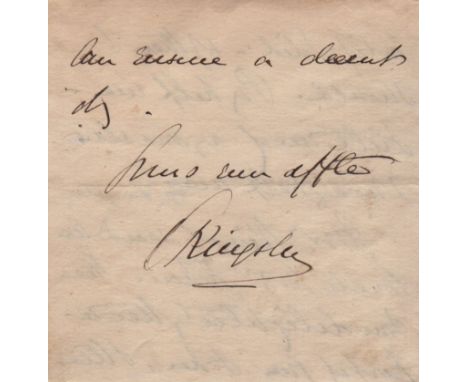 can ensure a decent
day.
Yours ever affte
CKingsley